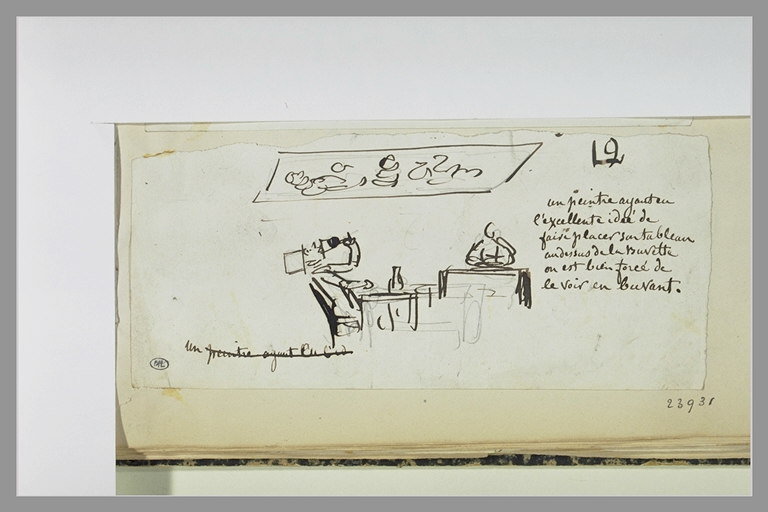 12
un peintre ayant eu
l'excellente idée de
faire placer son tableau
au dessus de la Buvette
on est bien forcé de
le voir en buvant.
un peintre ayant eu l'id
23931